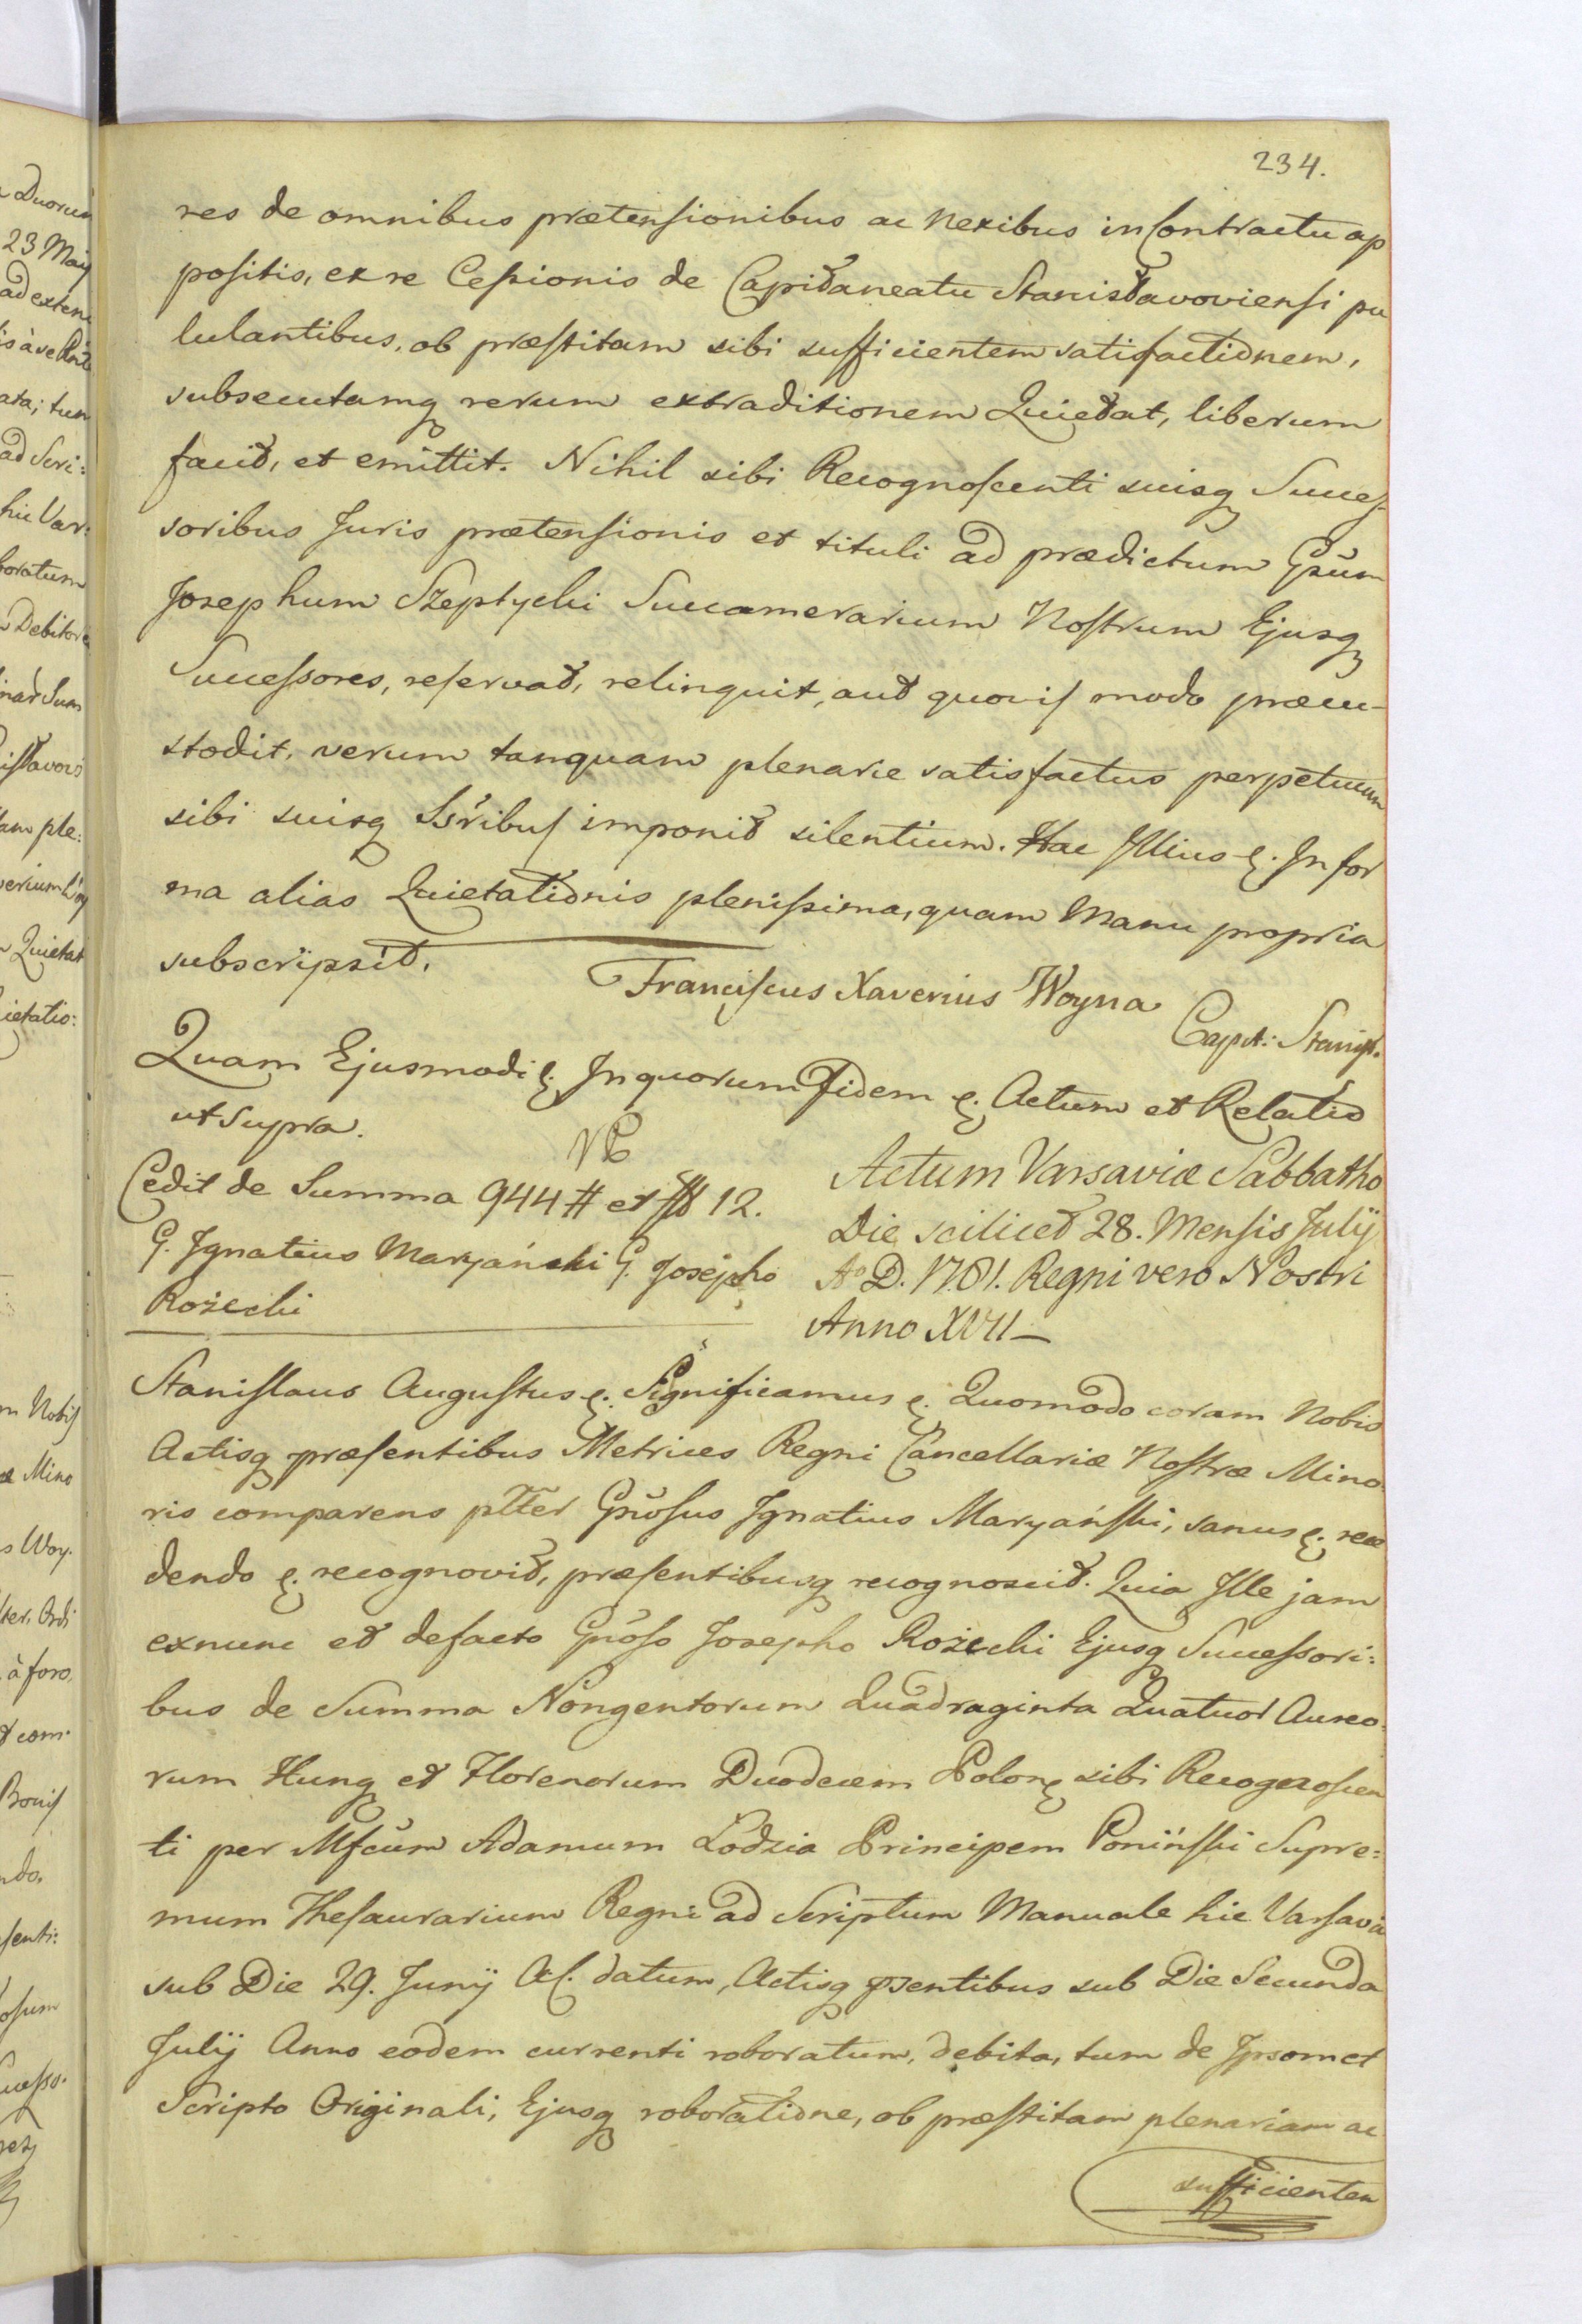 234.
res de omnibus prætensionibus ac Nexibus in Contractu ap
positis, ex re Cessionis de Capitaneatu Stanisławoviensi pu
lulantibus, ob præstitam sibi sufficientem satisfactionem,
subsecutamq rerum extraditionem Quietat, liberum
facit, et emittit. Nihil sibi Recognoscenti suisq Succes-
soribus Juris prætensionis et tituli ad prædictum Gsūm
Josephum Szeptycki Succamerarium Nostrum Ejusq
Successores, reservat, relinquit, aut quovis modo præcu-
stodit, verum tanquam plenarie satisfactus perpetuum
sibi suisq Ssribus imponit silentium. Hac Illius &. In for
ma alias Quietationis plenissima, quam Manu propria
subscripsit.
Franciscus Xaverius Woyna
Capit: Stanisł.
Quam Ejusmodi &. In quorum Fidem &. Actum et Relatio
ut Supra.
Cedit de Summa 944 # et fl 12.
G. Ignatius Maryański G. Josepho
Rożecki
Actum Varsaviæ Sabbatho
Die scilicet 28. Mensis Julij
Aº D. 1781. Regni vero Nostri
Anno XVII
Stanislaus Augustus &. Significamus &. Quomodo coram Nobis
Actisq præsentibus Metrices Regni Cancellariæ Nostræ Mino
ris comparens plter Gnōsus Ignatius Maryański, sanus &. rece
dendo &. recognovit, præsentibusq recognoscit. Quia Ille jam
exnunc et defacto Gnōso Josepho Rożecki Ejusq Successori:
bus de Summa Nongentorum Quadraginta Quatuor Aureo:
rum Hung et Florenorum Duodecem Polon sibi Recognoscen
ti per Mfcūm Adamum Lodzia Principem Poniński Supre:
mum Thesaurarium Regni ad Scriptum Manuale hic Varsaviæ
sub Die 29. Junij A C. datum, Actisq psentibus sub Die Secunda
Julij Anno eodem currenti roboratum, debita, tum de Ipsomet
Scripto Originali, Ejusq roboratione, ob præstitam plenariam ac
sufficientem